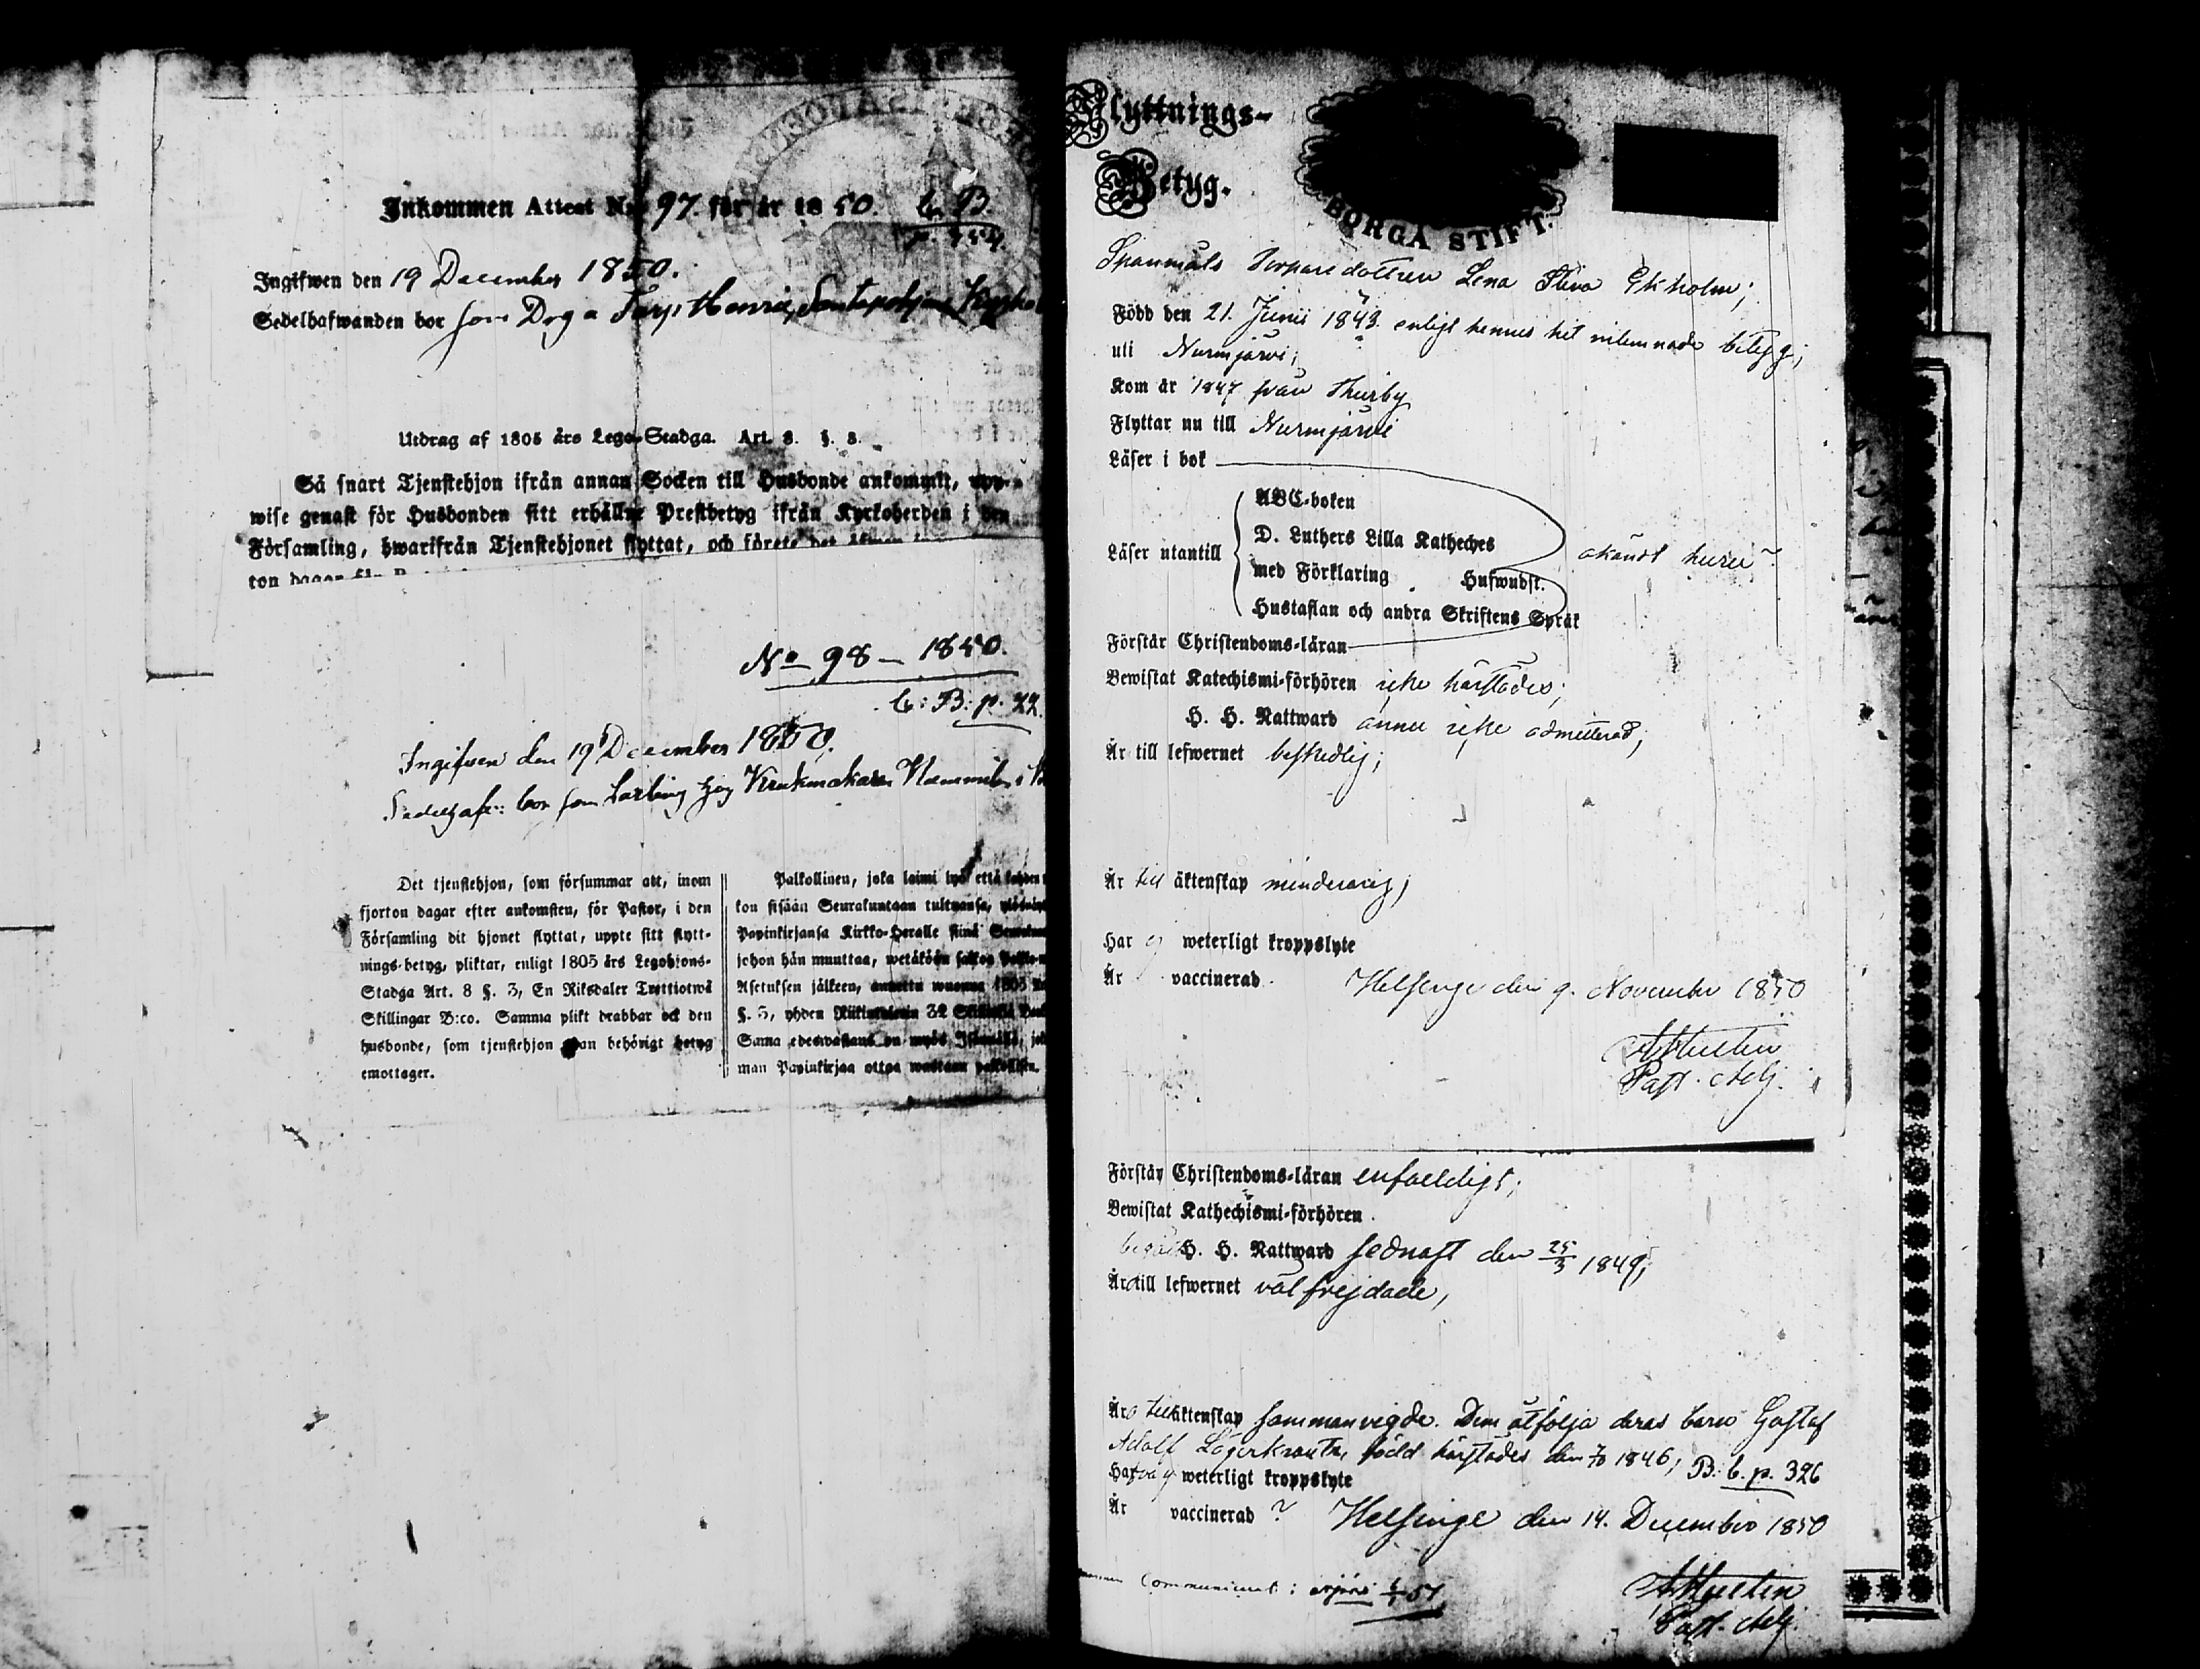 Inkommen Attest No 97. för år 1850. C. B.
Ingifwen den 19 December 1850.
Sedelhafwanden bor som Drg a Torp:
Utdrag af 1805 års Lego-Stadga. Art. 8. §. 3.
Så snart Tjenstehjon ifrån annan Socken till Husbonde ankommit, upp-
wise genast för Husbonden sitt erhållne Prestbetyg ifrån Kyrkoherden i den
Församling, hwarifrån Tjenstehjonet flyttat, och förete det
ton dagar
No 98 – 1850.
C: B: p. 22.
Ingifwen den 19 December 1850.
Sedelhafv: bor som Lärling hos Krukmakaren
Det tjenstehjon, som försummar att, inom
fjorton dagar efter ankomsten, för Pastor, i den
Församling dit hjonet flyttat, uppte sitt flytt-
nings-betyg, pliktar, enligt 1805 års Legohjons-
Stadga Art. 8 §. 3, En Riksdaler Trettiotwå
Skillingar B:co. Samma plikt drabbar ock den
husbonde, som tjenstehjon utan behörigt betyg
emottager.
Palkollinen, joka laimi lyö että kahden
kon sisään Seurakuntaan tultuansa,
Papinkirjansa Kirkko-Herralle siinä
johon hän muuttaa, wetäköön sakkoa
Asetuksen jälkeen, annettu wuonna 1805
§. 3, yhden Riikintalarin 32 Skillinkiä
Sama edeswastaus on myös Isännällä,
man Papinkirjaa ottaa wastaan palkollisen.
Flyttnings-
Betyg.
BORGÅ STIFT.
Torparedottren Lena Stina Ekholm;
Född den 21. Junii 1843. enligt hennes hit inlemnade betyg;
uti Nurmijärvi;
Kom år 1847 från Thusby
Flyttar nu till Nurmijärvi
Läser i bok
ABC-boken
D. Luthers Lilla Katheches
Läser utantill
med Förklaring Hufwudst.
okändt huru
Hustaflan och andra Skriftens Språk
Förstår Christendoms-läran
Bewistat Katechismi-förhören icke härstädes;
H. H. Nattward ännu icke admitterad;
Är till lefwernet beskedlig;
Är till äktenskap minderårig;
Har ej weterligt kroppslyte
Är vaccinerad.
Helsinge den 9. November 1850
Past. Adj.
Förstår Christendoms-läran enfaldigt;
Bewistat Kathechismi-förhören.
begått H. H. Nattward sednast den 25/3 1849;
Äro till lefwernet välfrejdade,
Äro till äktenskap sammanvigde. Dem åtfölja deras barn Gustaf
Adolf Lagerkrantz, född härstädes den 1846; B: b. p. 326
Har weterligt kroppslyte
Är vaccinerad?
Helsinge den 14. December 1850
Communicat:
Past. Adj.